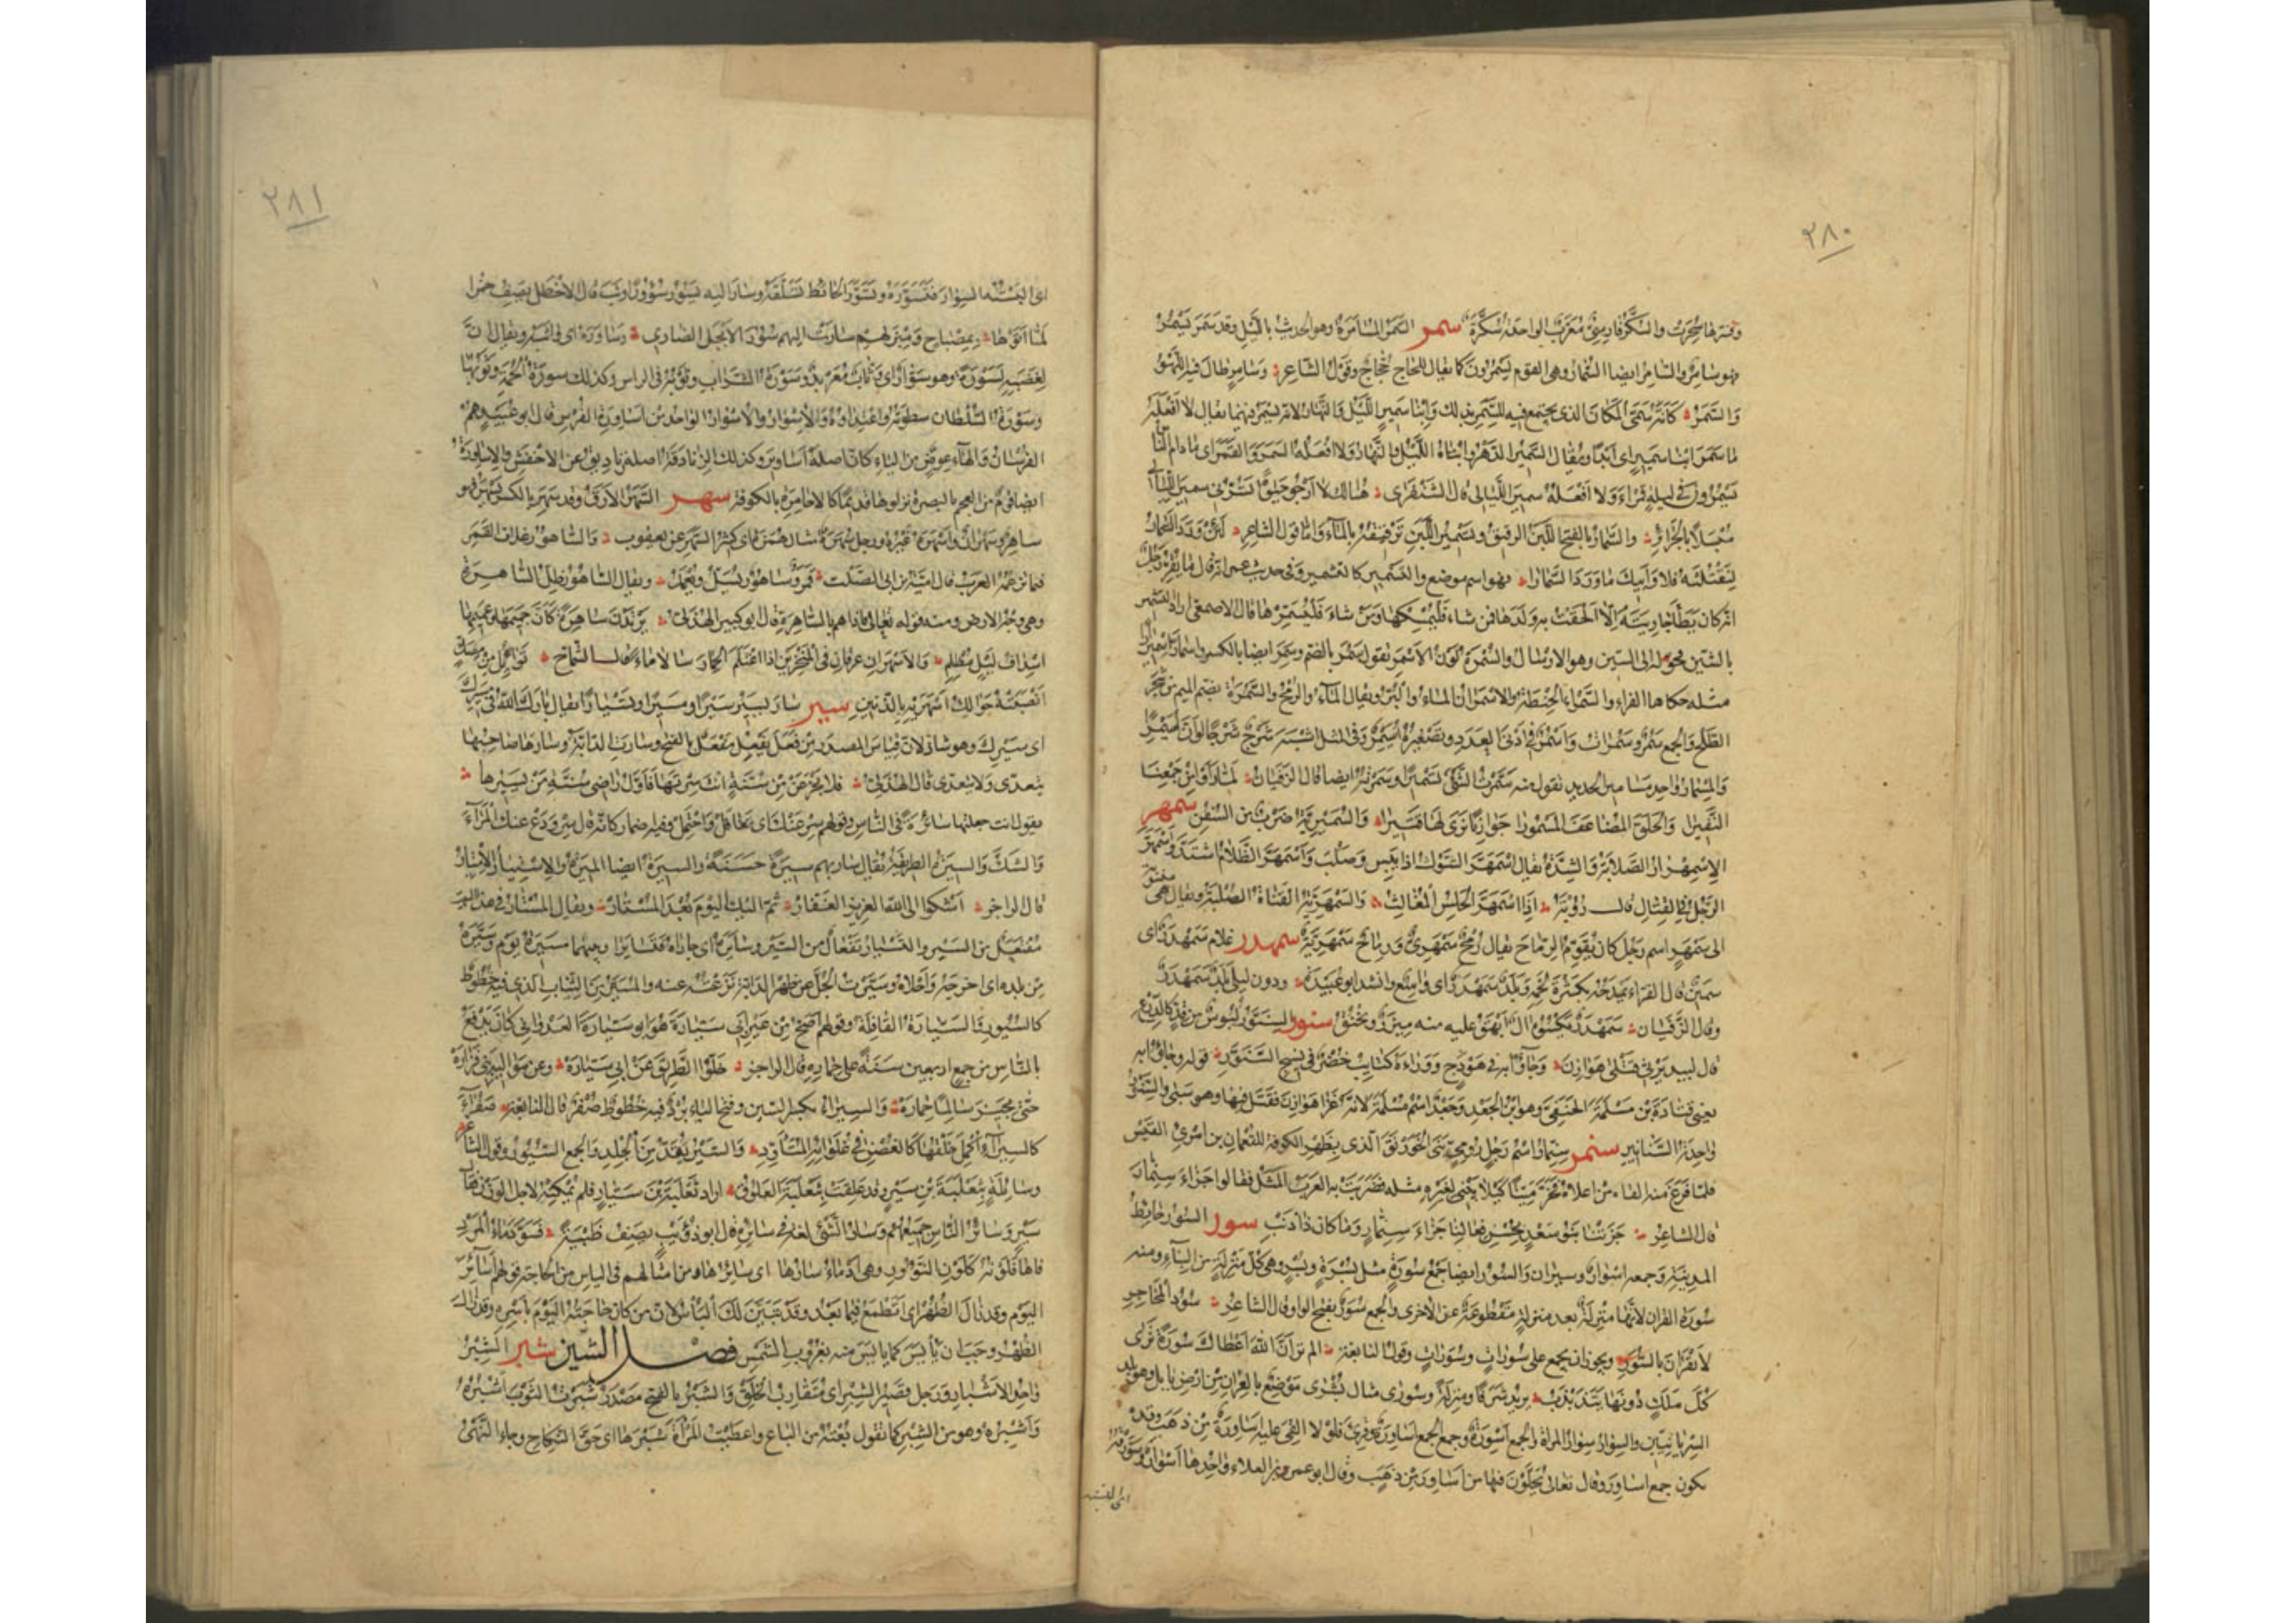 ٢٨٠
وفسرها سُحِرَت والسُّكَّر فارسىّ معرّب الواحدة سُكَّرة سمر السَّمَر المسامرة وهو الحديث بالليل وقد سَمَرَ يَسْمُرُ
فهو سامر والسامر ايضا السُّمَّار وهم القوم يسمرون كما يقال للحاج حُجّاج وقول الشاعر وسامرٍ طال فيه اللهو
والسَّمَرُ كانه سمى المكان الذى يجتمع فيه للسمر بذلك وابنا سمير الليل والنهار لانه يسمر فيهما يقال لا افعله
ما سمر ابنا سمير اى ابدا ويقال السمير الدهر وابناه الليل والنهار ولا افعله السمر والقمر اى ما دام الناس
يسمرون فى ليلة قمراء ولا افعله سمير الليالى قال الشنفرى هنالك لا ارجو حيوة تسرنى سمير الليالى
مُبْسَلاً بالجرائر والسَّمار بالفتح اللبن الرقيق وتسمير اللبن ترقيقه بالماء واما قول الشاعر لئن ورد السمار
لنقتلنه فلا وابيك ما ورد السمارا فهو اسم موضع والتسمير كالتشمير وفى حديث عمر انه قال ما يقر رجل
انه كان يطأ جاريته الا الحقت به ولدها فمن شاء فليمسكها ومن شاء فليسمرها قال الاصمعى اراد التشمير
بالشين فحوله الى السين وهو الارسال والسمرة لون الاسمر تقول سمر بالضم وسمر ايضا بالكسر واسمارّ اسميرارا
مثله حكاها الفراء والسمراء الحنطة والاسمران الماء والبر ويقال الماء والرمح والسمرة بضم الميم من شجر
الطلح والجمع سمر وسمرات واسمر فى ادنى العدد وتصغيره اسيمر وفى المثل اشبه شرج شرجا لو ان اسيمرا
والمسمار واحد مسامير الحديد تقول منه سمرت الشئ تسميرا وسمرته ايضا قال الزفيان لما رأوا من جمعنا
النفيرا والحلق المضاعف المسمورا جوارنا ترى لها قتيرا والسميرية ضرب من السفن سمهر
الاسمهرار الصلابة والشدة يقال اسمهر الشوك اذا يبس وصلب واسمهر الظلام اشتد واسمهر
الرجل فى القتال قال رؤبة اذا اسمهر الحلس المغالث والسمهرية القناة الصلبة ويقال هى منسوبة
الى سمهر اسم رجل كان يقوم الرماح يقال رمح سمهرى ورماح سمهرية سمهدر غلام سمهدر اى
سمين قال الفراء يمدحه بكثرة لحمه وبلد سمهدر اى واسع وانشد ابو عبيدة ودون ليلى بلد سمهدر
وقال الزفيان سمهدر يكسوه آل ابهق عليه منه مئزر وبخنق سنور السنور لبوس من قد كالدرع
قال لبيد يرثى قتلى هوازن وجاؤا به فى هودج ووراءه كتايب خضر فى نسج السنور قوله وجاؤا به
يعنى قتادة بن مسلمة الحنفى وهو ابن الجعد وجعد اسم مسلمة لانه غزا هوازن فقتل فيها وهو سبى والسنور
واحدة السنانير سنمر سنمار اسم رجل رومى بنى الخورنق الذى بظهر الكوفة للنعمان بن امرئ القيس
فلما فرغ منه القاه من اعلاه فخر ميتا كيلا يبنى لغيره مثله فضربت به العرب المثل فقالوا جزاء سنمار
قال الشاعر جزتنا بنو سعد بحسن فعالنا جزاء سنمار وما كان ذا ذنب سور السور حائط
المدينة وجمعه اسوار وسيران والسور ايضا جمع سورة مثل بسرة وبسر وهى كل منزلة من البناء ومنه
سورة القران لانها منزلة بعد منزلة مقطوعة عن الاخرى والجمع سور بفتح الواو قال الشاعر سود المحاجر
لا يقرأن بالسور ويجوز ان يجمع على سورات وسورات وقول النابغة الم تر ان الله اعطاك سورة ترى
كل ملك دونها يتذبذب يريد شرفا ومنزلة وسورى مثال بشرى موضع بالعراق من ارض بابل وهو بلد
السريانيين والسوار سوار المراة والجمع اسورة وجمع الجمع اساورة وقرئ فلولا القى عليه اساورة من ذهب وقد
يكون جمع اساور وقال تعالى يحلون فيها من اساور من ذهب وقال ابو عمرو بن العلاء واحدها اسوار وسورته
اى البسته
٢٨١
اى البسته السوار فتسوره وتسور الحائط تسلقه وسار اليه يسور سؤورا وثب قال الاخطل يصف خمرا
لما اتوها بمصباح ومبزلهم سارت اليهم سؤور الابجل الضارى وساوره اى واثبه ويقال ان
لغضبه لسورة وهو سوار اى وثاب معربد وسورة الشراب وثوبه فى الراس وكذلك سورة الحمة وثوبها
وسورة السلطان سطوته واعتداؤه والاسوار والاسوار الواحد من اساورة الفرس قال ابو عبيد هم
الفرسان والهاء عوض من الياء كان اصله اساوير وكذلك الزنادقة اصله زناديق عن الاخفش والاساورة
ايضا قوم من العجم بالبصرة نزلوها قديما كالاحامرة بالكوفة سهر السهر الارق وقد سهر بالكسر يسهر فهو
ساهر وسهران واسهره غيره ورجل سهرة مثال همزة اى كثير السهر عن يعقوب والساهور غلاف القمر
فيما تزعمه العرب قال امية بن ابى الصلت قمر وساهور يسل ويغمد ويقال الساهور ظل الساهرة
وهى وجه الارض ومنه قوله تعالى فاذا هم بالساهرة قال ابو كبير الهذلى يرتدن ساهرة كان جميمها وعميمها
اسداف ليل مظلم والاسهران عرقان فى المنخرين اذا اغتلم الحمار سالا ماء قال الشماخ توائل من مصك
انصبته حوالب اسهريه بالذنين سير سار يسير سيرا ومسيرا وتسيارا يقال بارك الله فى مسيرك
اى سيرك وهو شاذ لان قياس المصدر من فعل يفعل مفعل بالفتح وسارت الدابة وسارها صاحبها
يتعدى ولا يتعدى قال الهذلى فلا تجزعن من سنة انت سرتها فاول راضى سنة من يسيرها
يقول انت جعلتها سائرة فى الناس وقولهم سر عنك اى تغافل واحتمل وفيه ضمار كانه قال سر ودع عنك المراء
والشك والسيرة الطريقة يقال سار بهم سيرة حسنة والسيرة ايضا الميرة والاستيار الامتيار
قال الراجز اشكوا الى الله العزيز الغفار ثم اليك اليوم بعد المستار ويقال المستار فى هذا البيت
مفتعل من السير والتسيار تفعال من السير وسايره اى جاراه فتسايرا وبينهما مسيرة يوم وسيره
من بلده اى اخرجه واجلاه وسيرت الجل عن ظهر الدابة نزعته عنه والمسير من الثياب الذى فيه خطوط
كالسيور والسيارة القافلة وقولهم اصح من عير ابى سيارة هو ابو سيارة العدوانى كان يدفع
بالناس من جمع اربعين سنة على حماره قال الراجز خلوا الطريق عن ابى سيارة وعن مواليه بنى فزارة
حتى يجيز سالما حماره والسيراء بكسر السين وفتح الياء برد فيه خطوط صفر قال النابغة صفراء
كالسيراء اكمل خلقها كالغصن فى غلوائه المتأود والسير يقد من الجلد والجمع السيور وقول الشاعر
وسائلة بثعلبة بن سير وقد علقت بثعلبة العلوق اراد ثعلبة بن سيار فلم يمكنه لاجل الوزن فقال
سير وسائر الناس جميعهم وسار الشئ لغة فى سايره قال ابو ذؤيب يصف ظبية فسود ماء المرد
فاها فلونه كلون النؤور وهى ادماء سارها اى سائرها ومن امثالهم فى الياس من الحاجة قولهم اسائر
اليوم وقد زال الظهر اى اتطمع فيما بعد وقد تبين لك الياس لان من كان حاجته اليوم باسره وقد زال
الظهر وجب ان يأيس كما يايس منه بغروب الشمس فصل الشين شبر الشبر
واحد الاشبار ورجل قصير الشبر اى متقارب الخلق والشبر بالفتح مصدر شبرت الثوب اشبره
واشبره وهو من الشبر كما تقول بعته من الباع واعطيت المراة شبرها اى حق النكاح وجاء النهى